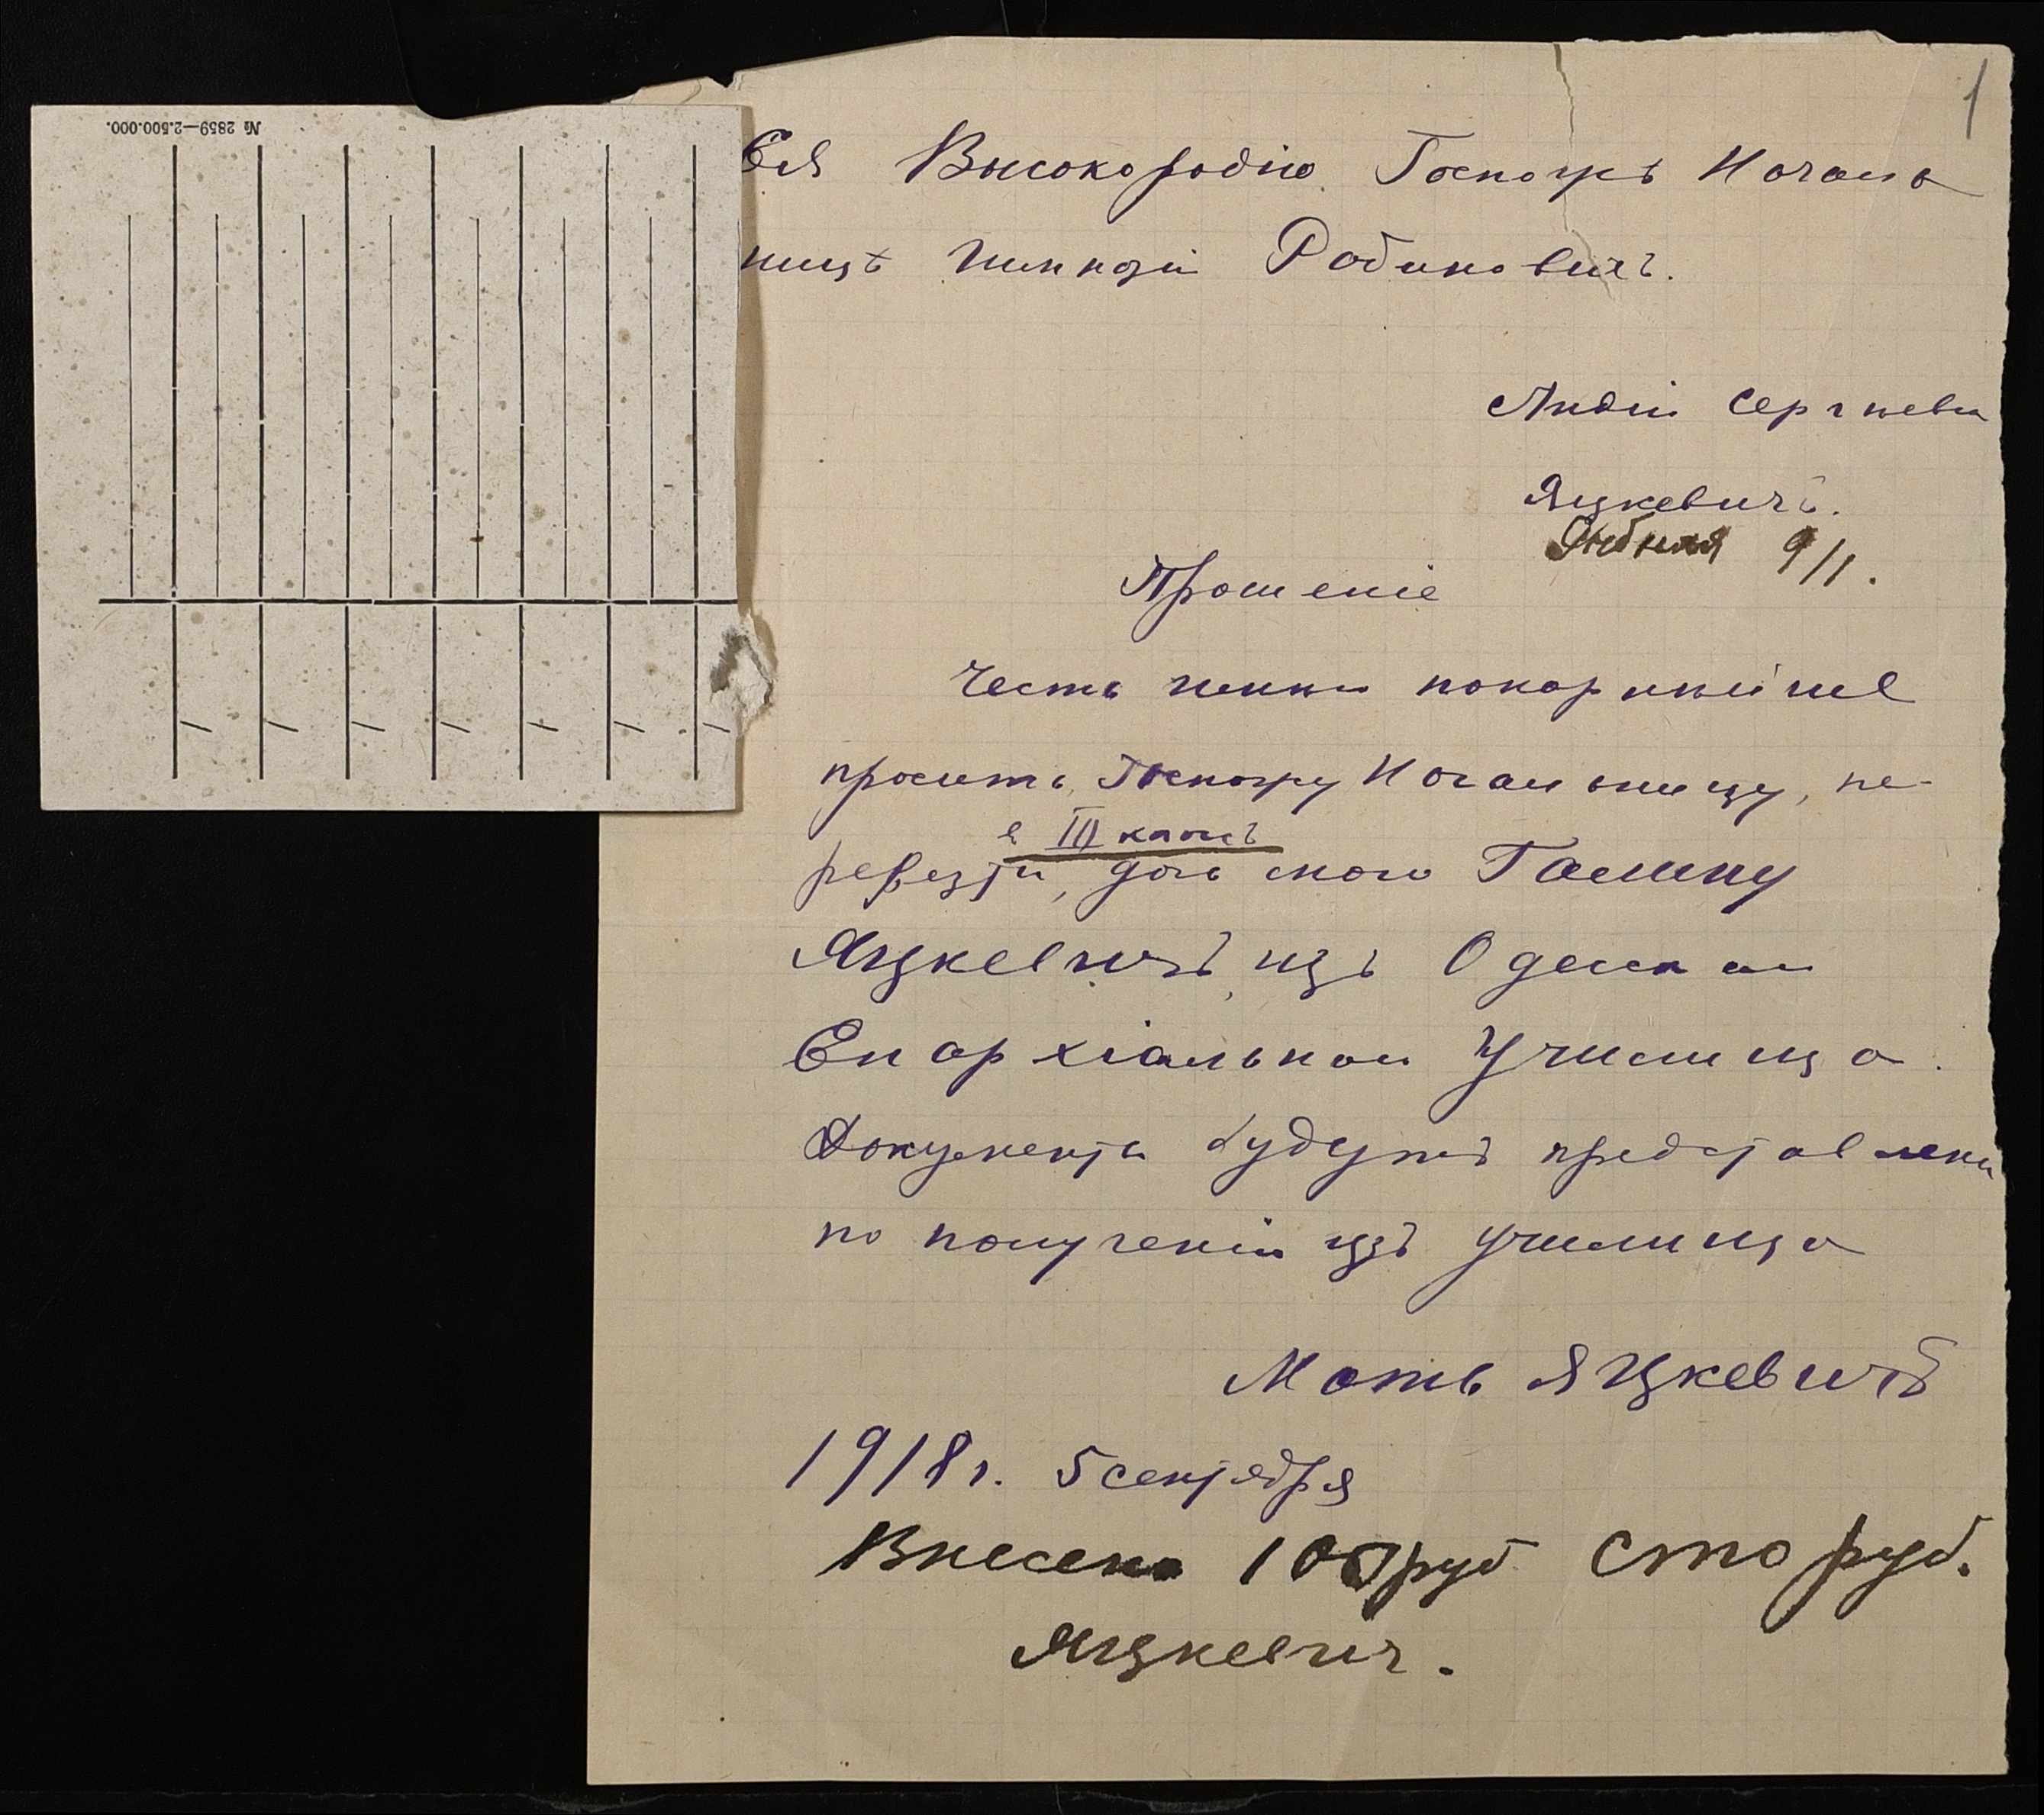 № 2859—2.500.000.
1
Ея Высокородію Госпожѣ Начало
ницѣ Гимназіи Рабиновичъ.
Лидіи Сергѣевн
Яцкевичъ.
9/1.
Прошеніе
Честь имѣю покорнѣйше
просить Госпожу Начальницу, пе-
в III классъ
ревезти, дочь мою Галину
Яцкевичъ изъ Одесскаго
Епархіальнаго Училища.
Документы будутъ представлены
по полученіи изъ училища
Мать Яцкевичъ
1918 г. 5 сентября
Внесено 100 руб. Сто руб.
Яцкевич.